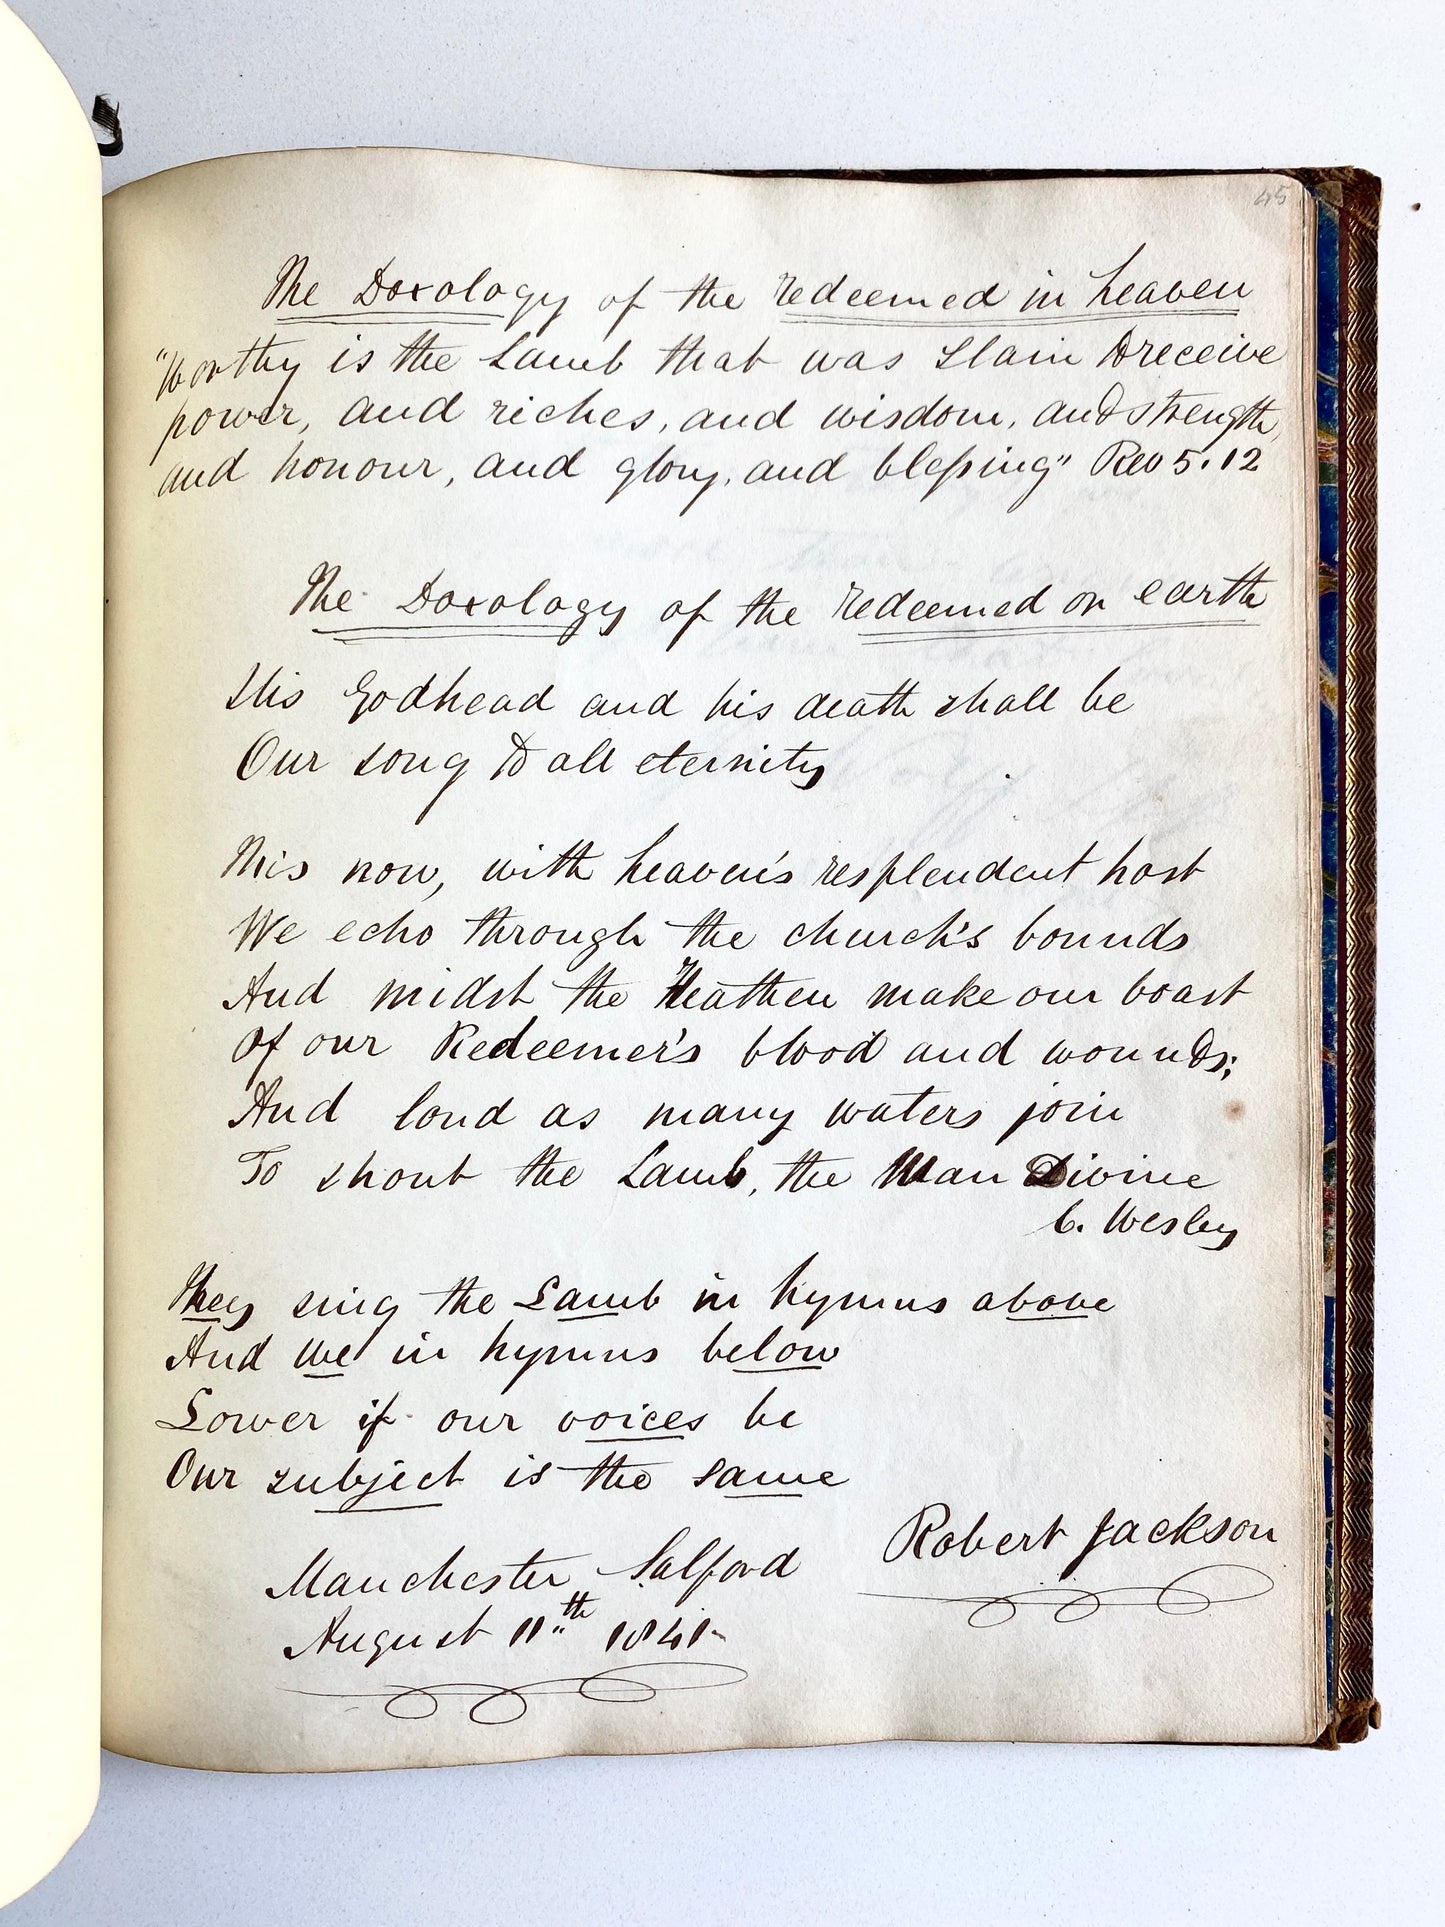 45
The Doxology of the redeemed in heaven
"Worthy is the Lamb that was slain to receive
power, and riches, and wisdom, and strength,
and honour, and glory, and blessing" Rev 5.12
The Doxology of the redeemed on earth
His Godhead and his death shall be
Our song to all eternity
This now, with heaven's resplendent host
We echo through the church's bounds
And midst the Heathen make our boast
Of our Redeemer's blood and wounds;
And loud as many waters join
To shout the Lamb, the Man Divine
C. Wesley
They sing the Lamb in hymns above
And we in hymns below
Lower if our voices be
Our subject is the same
Robert Jackson
Manchester Salford
August 11th 1841